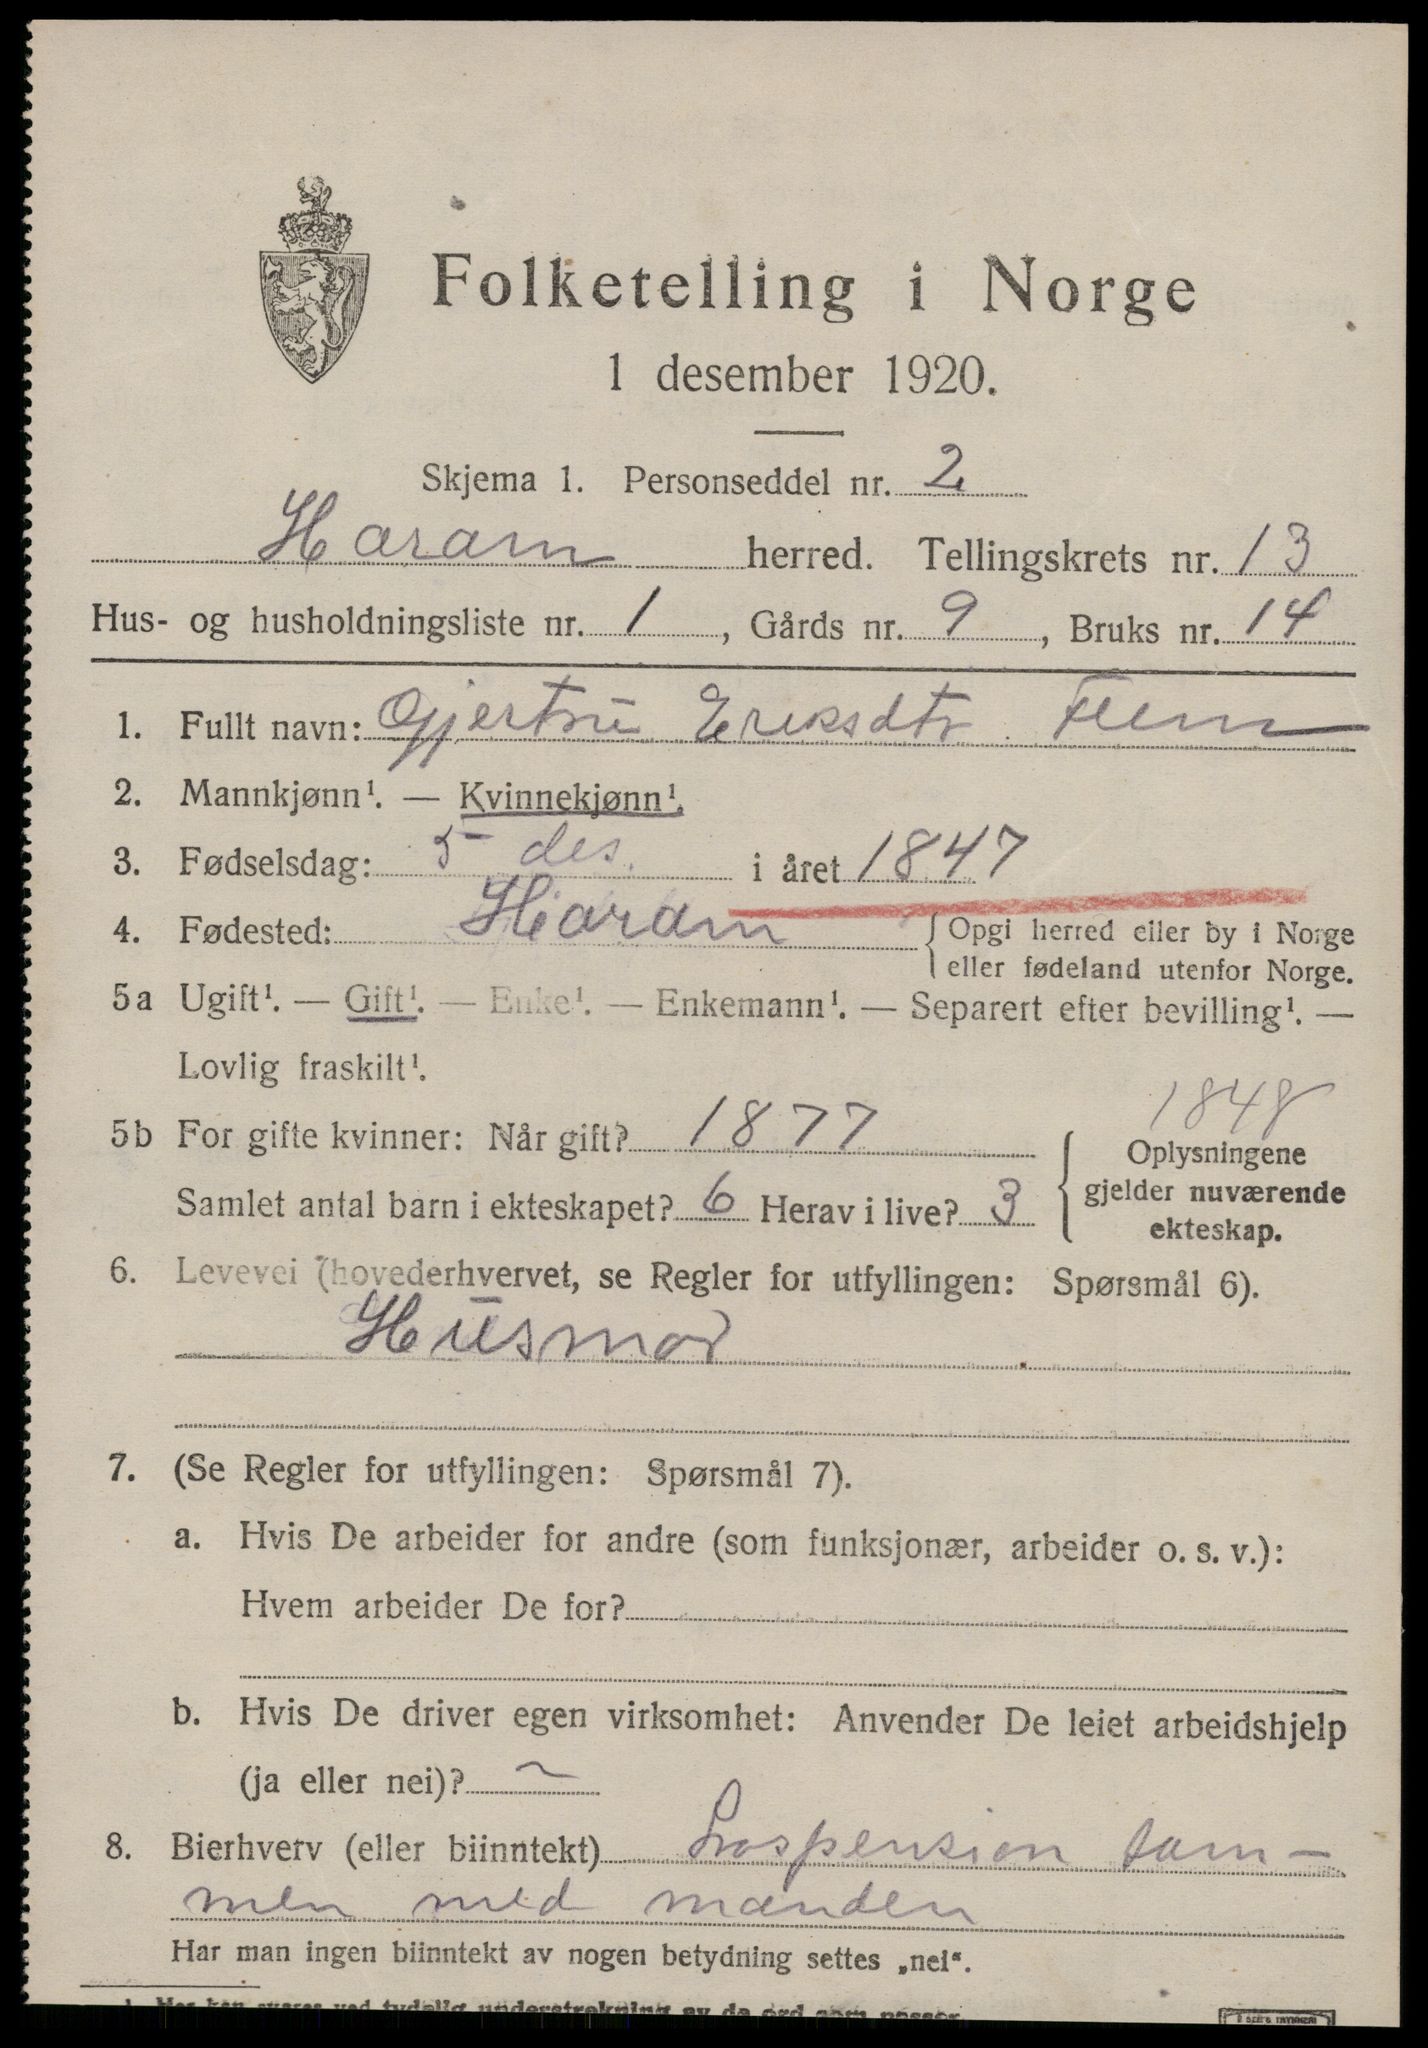 Folketelling i Norge
1 desember 1920.
Skjema 1. Personseddel nr. 2
Haram herred. Tellingskrets nr. 13
Hus- og husholdningsliste nr. 1, Gårds nr. 9, Bruks nr. 14
1. Fullt navn: Gjertrü Eriksdtr Flem
2. Mannkjønn¹. — Kvinnekjønn¹.
3. Fødselsdag: 5 des. i året 1847
4. Fødested: Haram { Opgi herred eller by i Norge
eller fødeland utenfor Norge.
5a Ugift¹. — Gift¹. — Enke¹. — Enkemann¹. — Separert efter bevilling¹. —
Lovlig fraskilt¹.
1848
5b For gifte kvinner: Når gift? 1877
Samlet antal barn i ekteskapet? 6 Herav i live? 3
{ Oplysningene
gjelder nuværende
ekteskap.
6. Levevei (hovederhvervet, se Regler for utfyllingen: Spørsmål 6).
Hüsmor
7. (Se Regler for utfyllingen: Spørsmål 7).
a. Hvis De arbeider for andre (som funksjonær, arbeider o. s. v.):
Hvem arbeider De for?
b. Hvis De driver egen virksomhet: Anvender De leiet arbeidshjelp
(ja eller nei)? ~
8. Bierhverv (eller biinntekt) Lospension sam-
men med manden
Har man ingen biinntekt av nogen betydning settes „nei“.